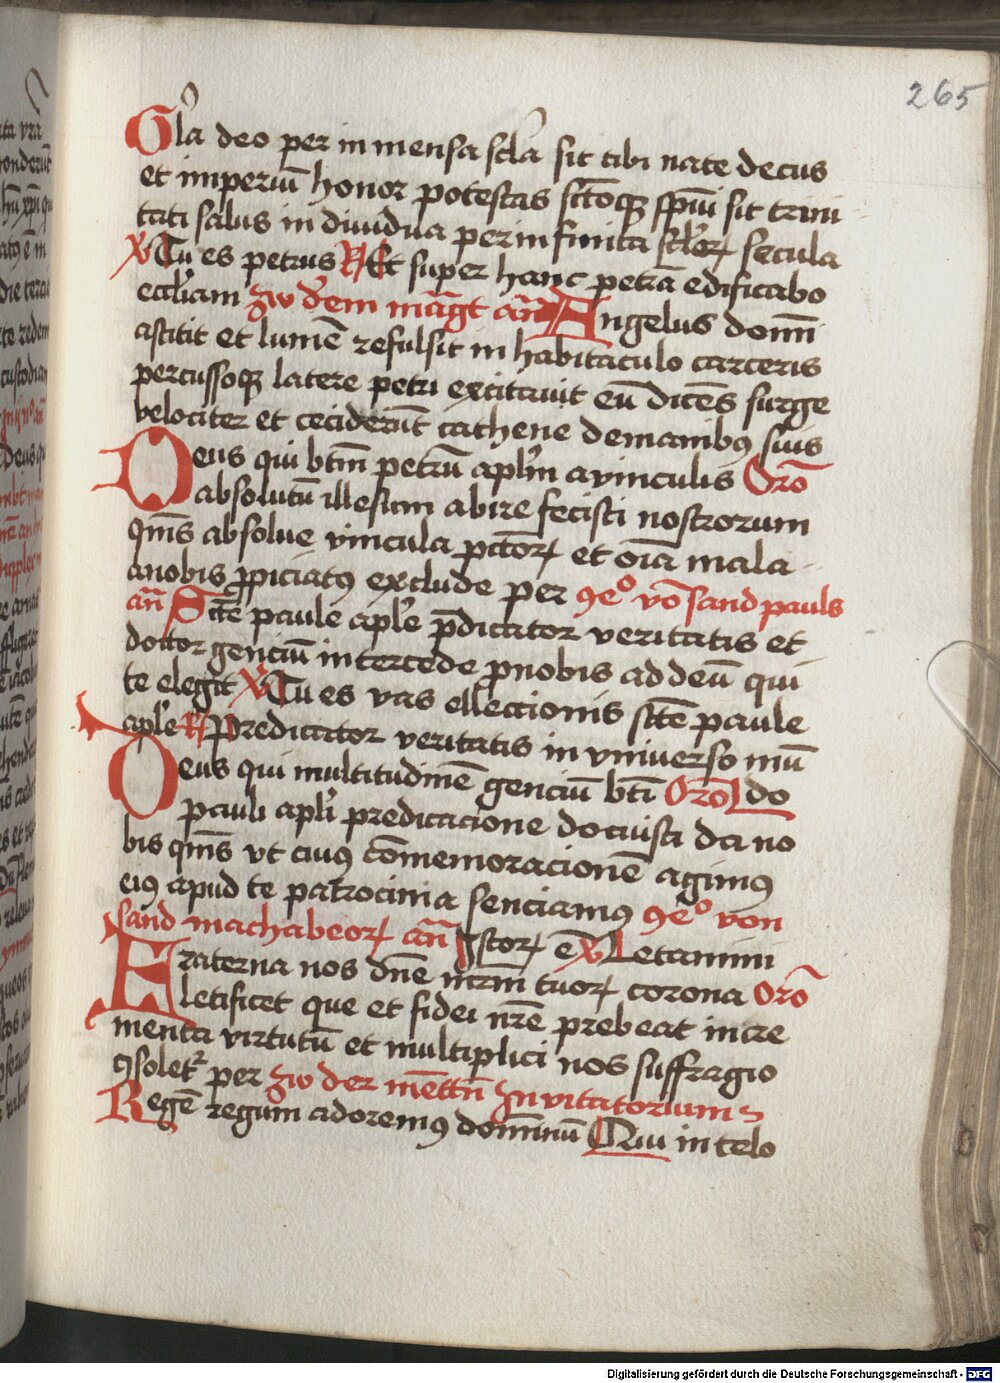 265
Gl'a deo per in mensa scl'a sit tibi nate decus
et imperiū honor potestas sc̄toqȝ sp̄ui sit trini
tati salus in diuidua per infinita scl'oꝝ secula
℣ Tu es petrus ℟ Et super hanc petrā edificabo
eccl'iam zw d'em māgt an̄ Angelus domī
astitit et lumē refulsit in habitaculo carceris
percussoqȝ latere petri excitauit eū dicēs surge
velociter et ceciderūt cathene de manibꝯ suis
Deus qui btm̄ petrū apl'm a vinculis Orō
absolutū illesum abire fecisti nostrorum
qm̄s absolue vincula pctōꝝ et oīa mala
a nobis ꝓpiciatꝯ exclude per ꝯeº vō sand pauls
an̄ Scē paule apl'e p̄dicator veritatis et
doctor genciū intercede p nobis ad deū qui
te elegit ℣ Tu es vas ellectionis sc̄tē paule
apl'e ℟ Predicator veritatis in vniuerso mū
Deus qui multitudinē genciū bt̄i Orō do
pauli apl'i predicacione docuisti da no
bis qm̄s vt cuiꝯ cōmemoracionē agimꝯ
eiꝯ apud te patrocinia senciamꝯ ꝯeº von
sand machabeoꝝ an̄ Istoꝝ ē ℣ Letamini
Fraterna nos dn̄e mr̄m tuoꝝ corona Orō
letificet que et fidei nr̄e prebeat incre
menta virtutū et multiplici nos suffragio
ꝯsolet᷑ per zw der mēttn̄ Inuitatorium
Regē regum adoremꝯ dominū Qui in celo
Digitalisierung gefördert durch die Deutsche Forschungsgemeinschaft - DFG